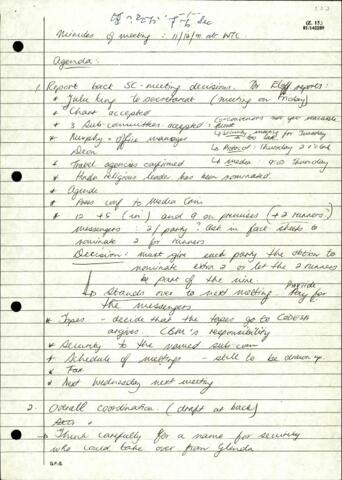 (Z. 15)
81/142289
Minutes of meeting : 11/12/91 at WTC
Agenda :
1. Report back SC-meeting decisions. Dr Eloff reports:
* Julu King to secretariat (meeting on Friday)
* Chart accepted
* 3 Sub-committees accepted :
* Murphy - office manager
Deon
↳ Protocol : Thursday 2 o'clock
* Travel agencies confirmed ↳ Media 9:00 Thursday
* Hindu religious leader has been nominated.
* Agenda
* Press conf to Media Com
* 12 + 5 (in) and 9 on premises (+2 runners)
messengers : 2/party. Ask in fact sheets to
nominate 2 for runners
Decision : must give each party the option to
nominate extra 2 or let the 2 runners
be part of the nine
↳ Stands over to next meeting. Pay for
the messengers
* Tapes - decide that the tapes go to CODESA
CBM's responsibility
* Security to the named sub-com
* Schedule of meetings - still to be drawn up.
* Fax
* Next Wednesday next meeting
2. Overall coordination : (draft at back)
→ Think carefully for a name for security
who could take over from Glenda